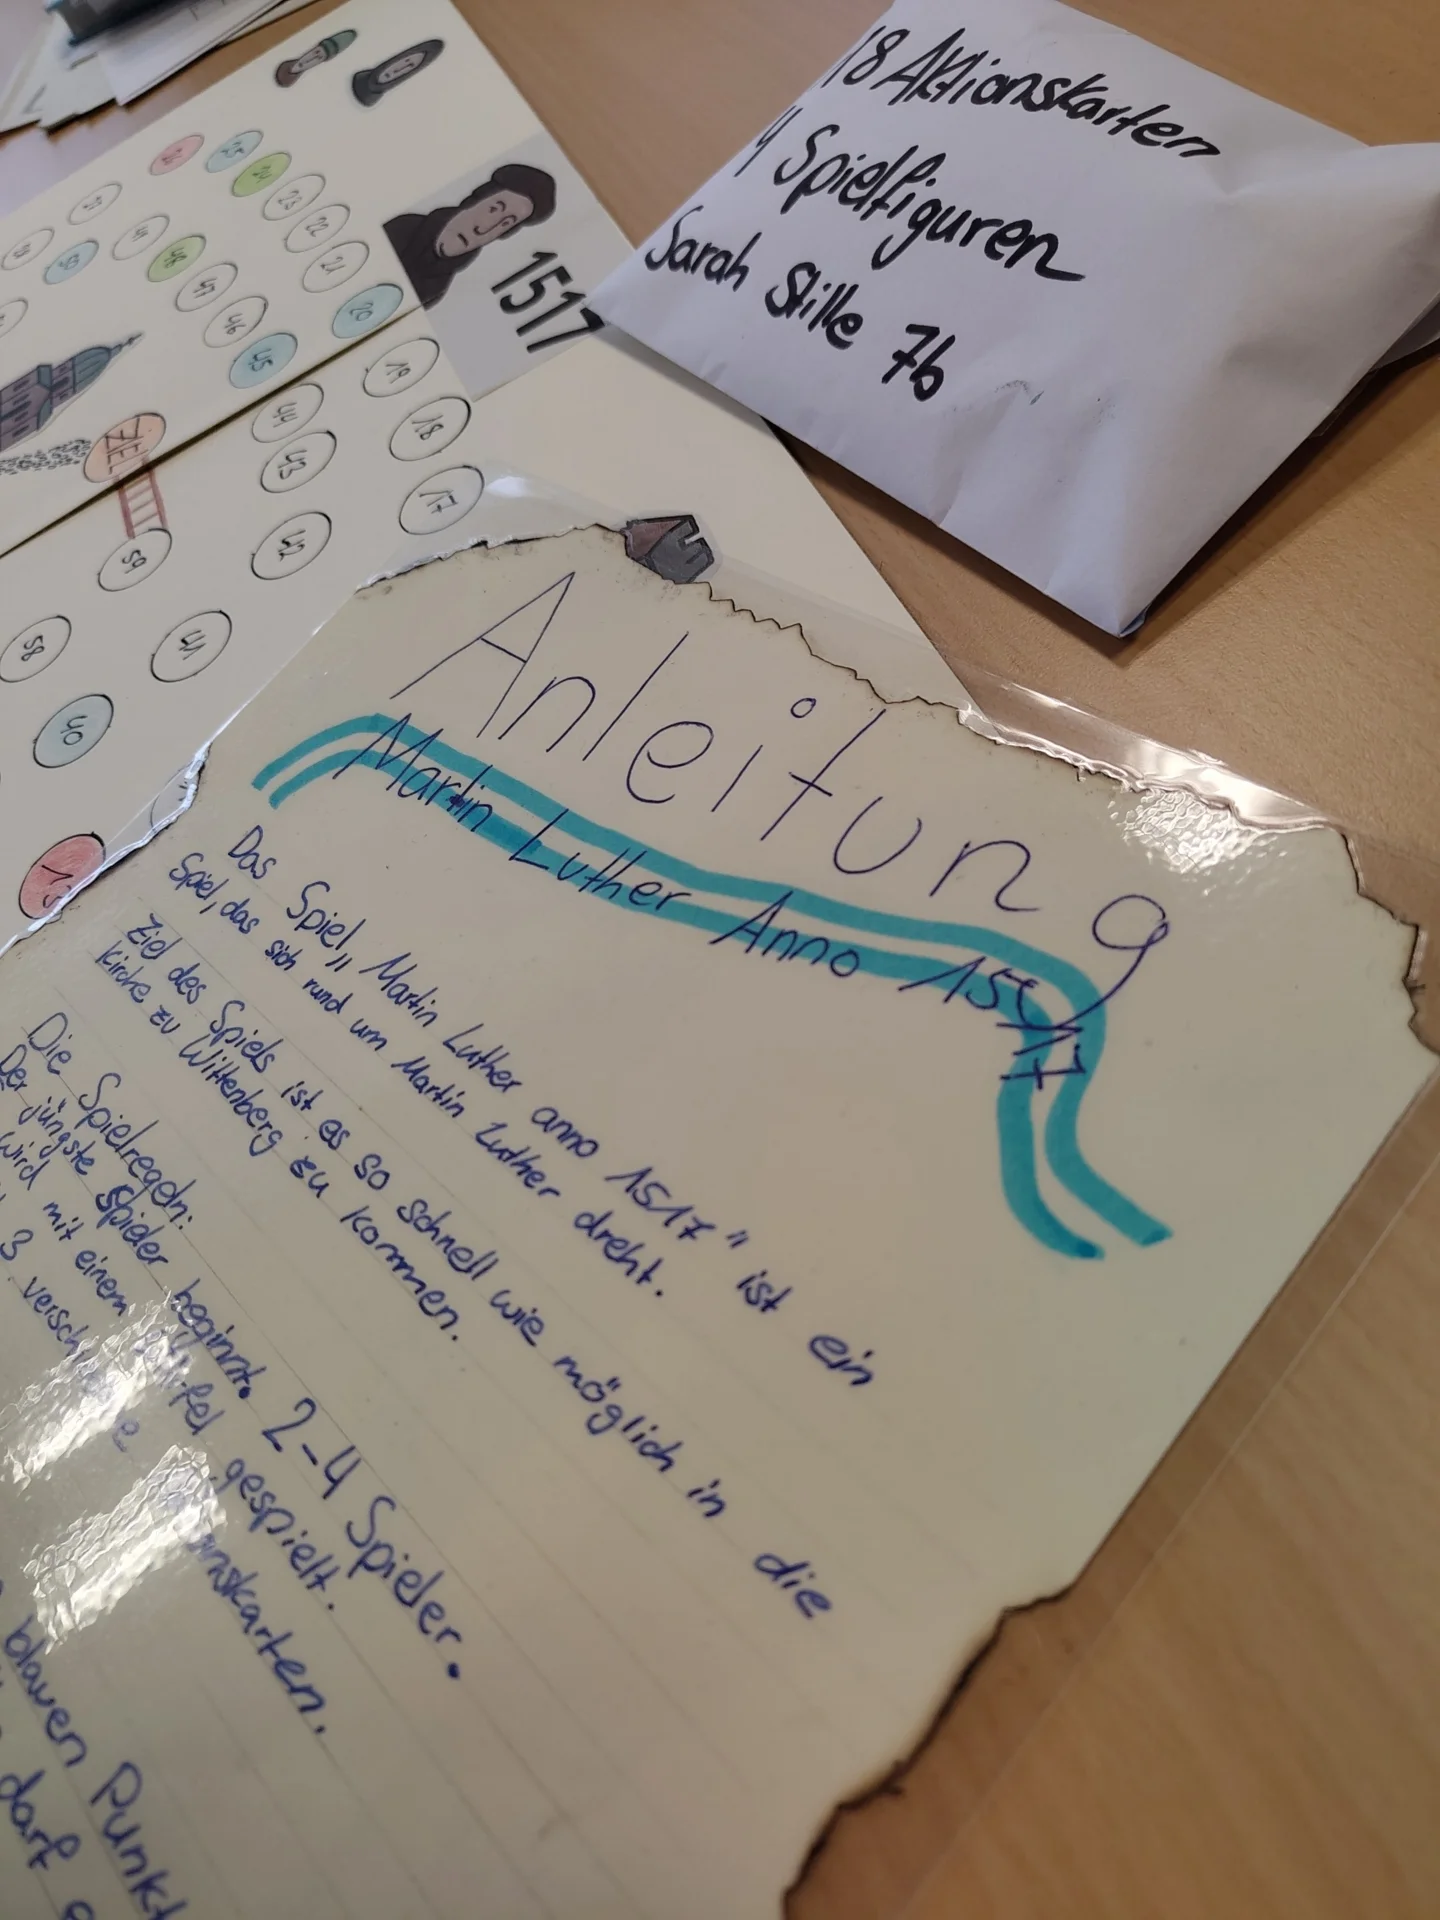 18 Aktionskarten
4 Spielfiguren
Sarah Stille 7b
1517
26 25 24 23 22 21 20 19 18 17
50 48 47 46 45 44 43 42 41 40
ZIEL
59
58
Anleitung
Martin Luther Anno 1517
Das Spiel „Martin Luther anno 1517" ist ein
Spiel, das sich rund um Martin Luther dreht.
Ziel des Spiels ist es so schnell wie möglich in die
Kirche zu Wittenberg zu kommen.
Die Spielregeln:
Der jüngste Spieler beginnt. 2-4 Spieler.
wird mit einem gespielt.
3
blauen Punkt
darf